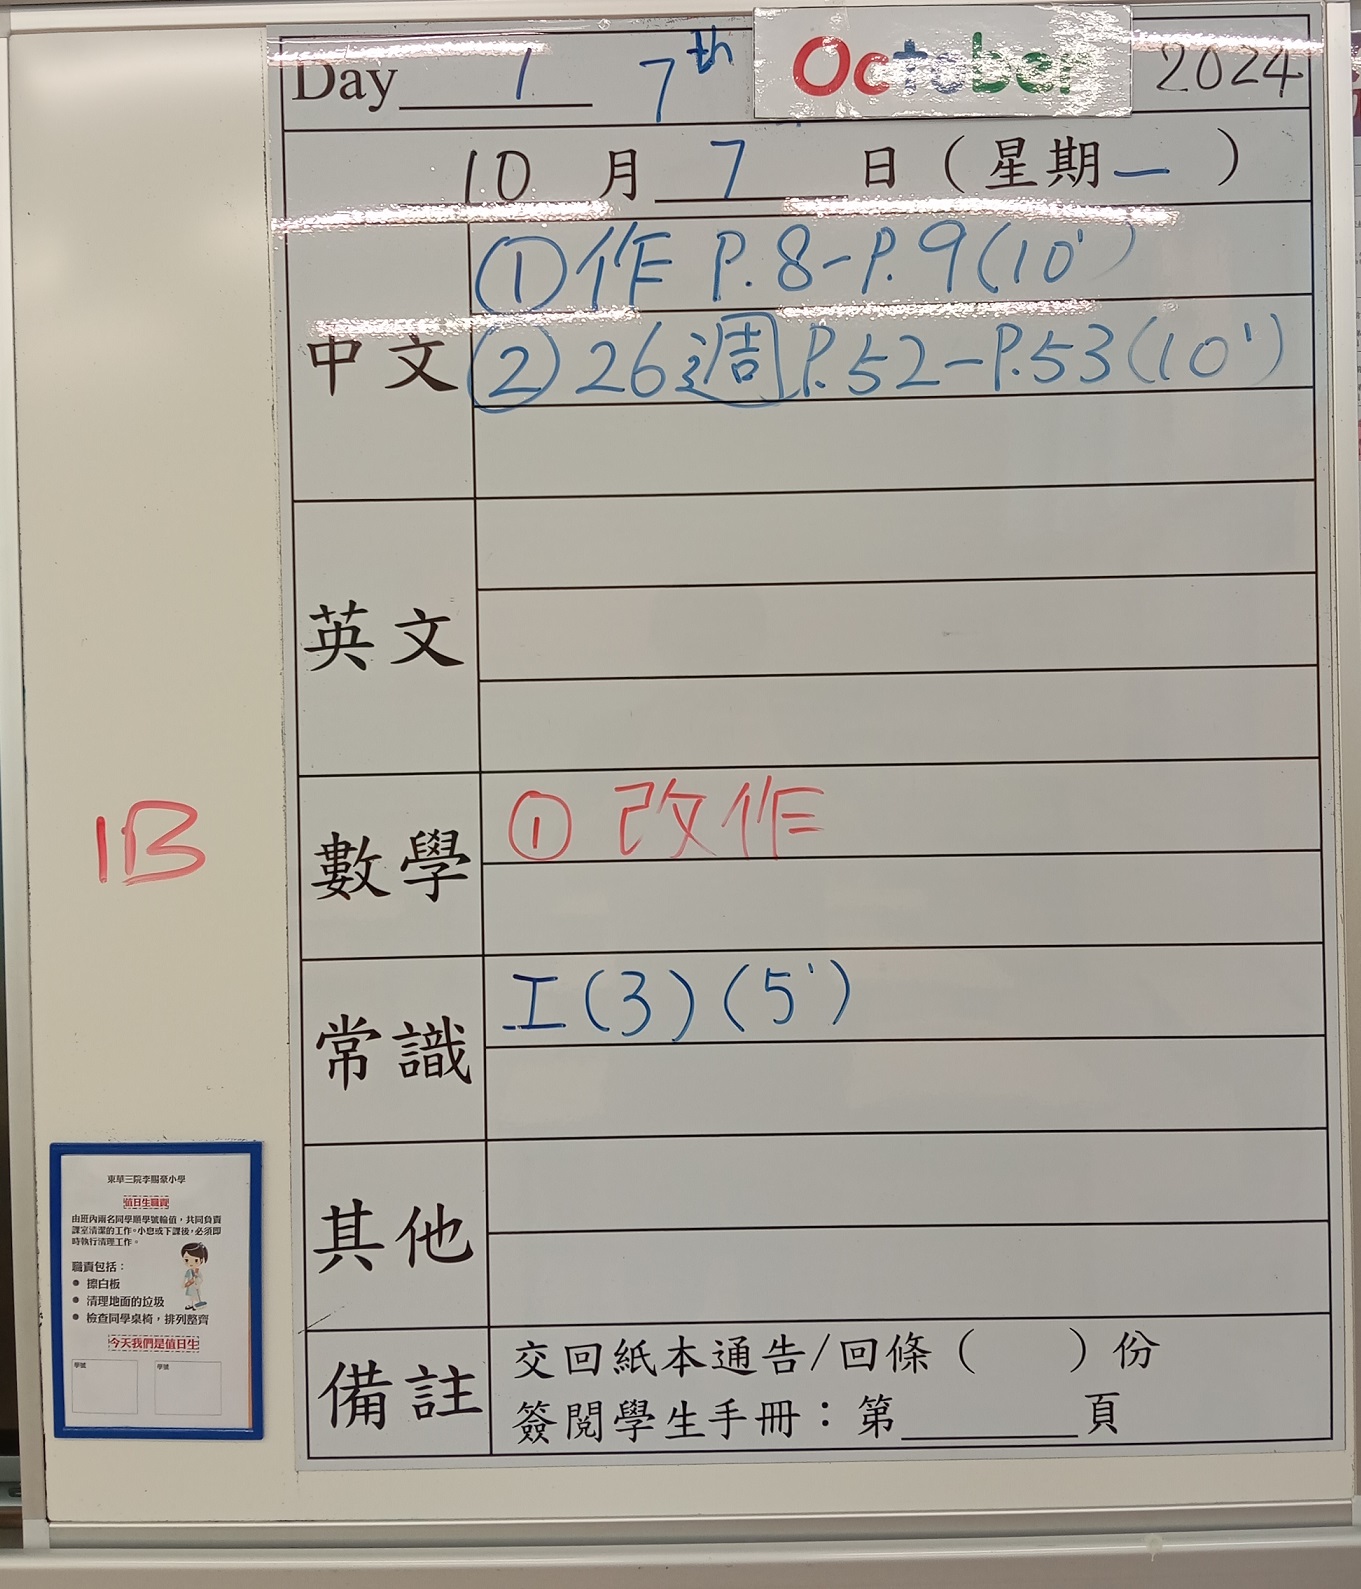 Day 1 7th October 2024
10 月 7 日（星期一）
中文
①作 P.8-P.9(10')
②26週P.52-P.53(10')
英文
數學
① 改作
常識
工(3)(5')
其他
備註
交回紙本通告/回條（ ）份
簽閱學生手冊：第______頁
1B
東華三院李賜豪小學
值日生職責
由班內兩名同學順學號輪值，共同負責
課室清潔的工作。小息或下課後，必須即
時執行清理工作。
職責包括：
● 擦白板
● 清理地面的垃圾
● 檢查同學桌椅，排列整齊
今天我們是值日生
學號
學號